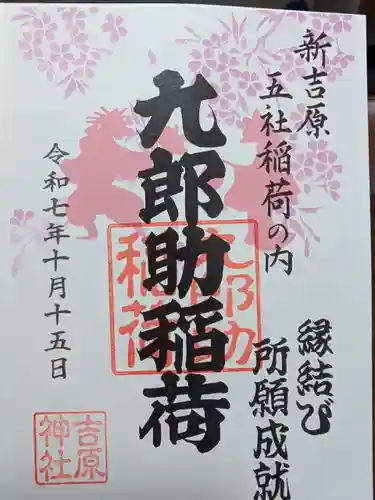 新吉原
五社稲荷の内
縁結び
所願成就
九郎助稲荷
九郎助
稲荷
令和七年十月十五日
吉原
神社